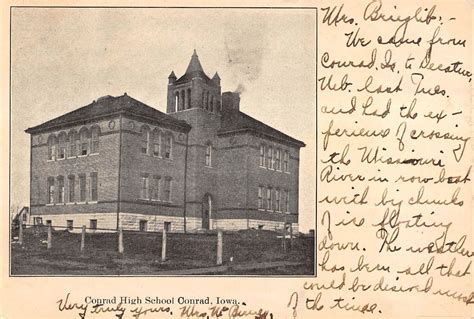 Mrs. Brightib:-
We came from
Conrad, Ia. to Decatur,
Neb. last Tues.
and had the ex-
perience of crossing
the Missouri
River in row boat
with big chunks
of ice floating
down. The weather
has been all that
could be desired most
of the time.
Very truly yours. Mrs. Mc
Conrad High School Conrad, Iowa.